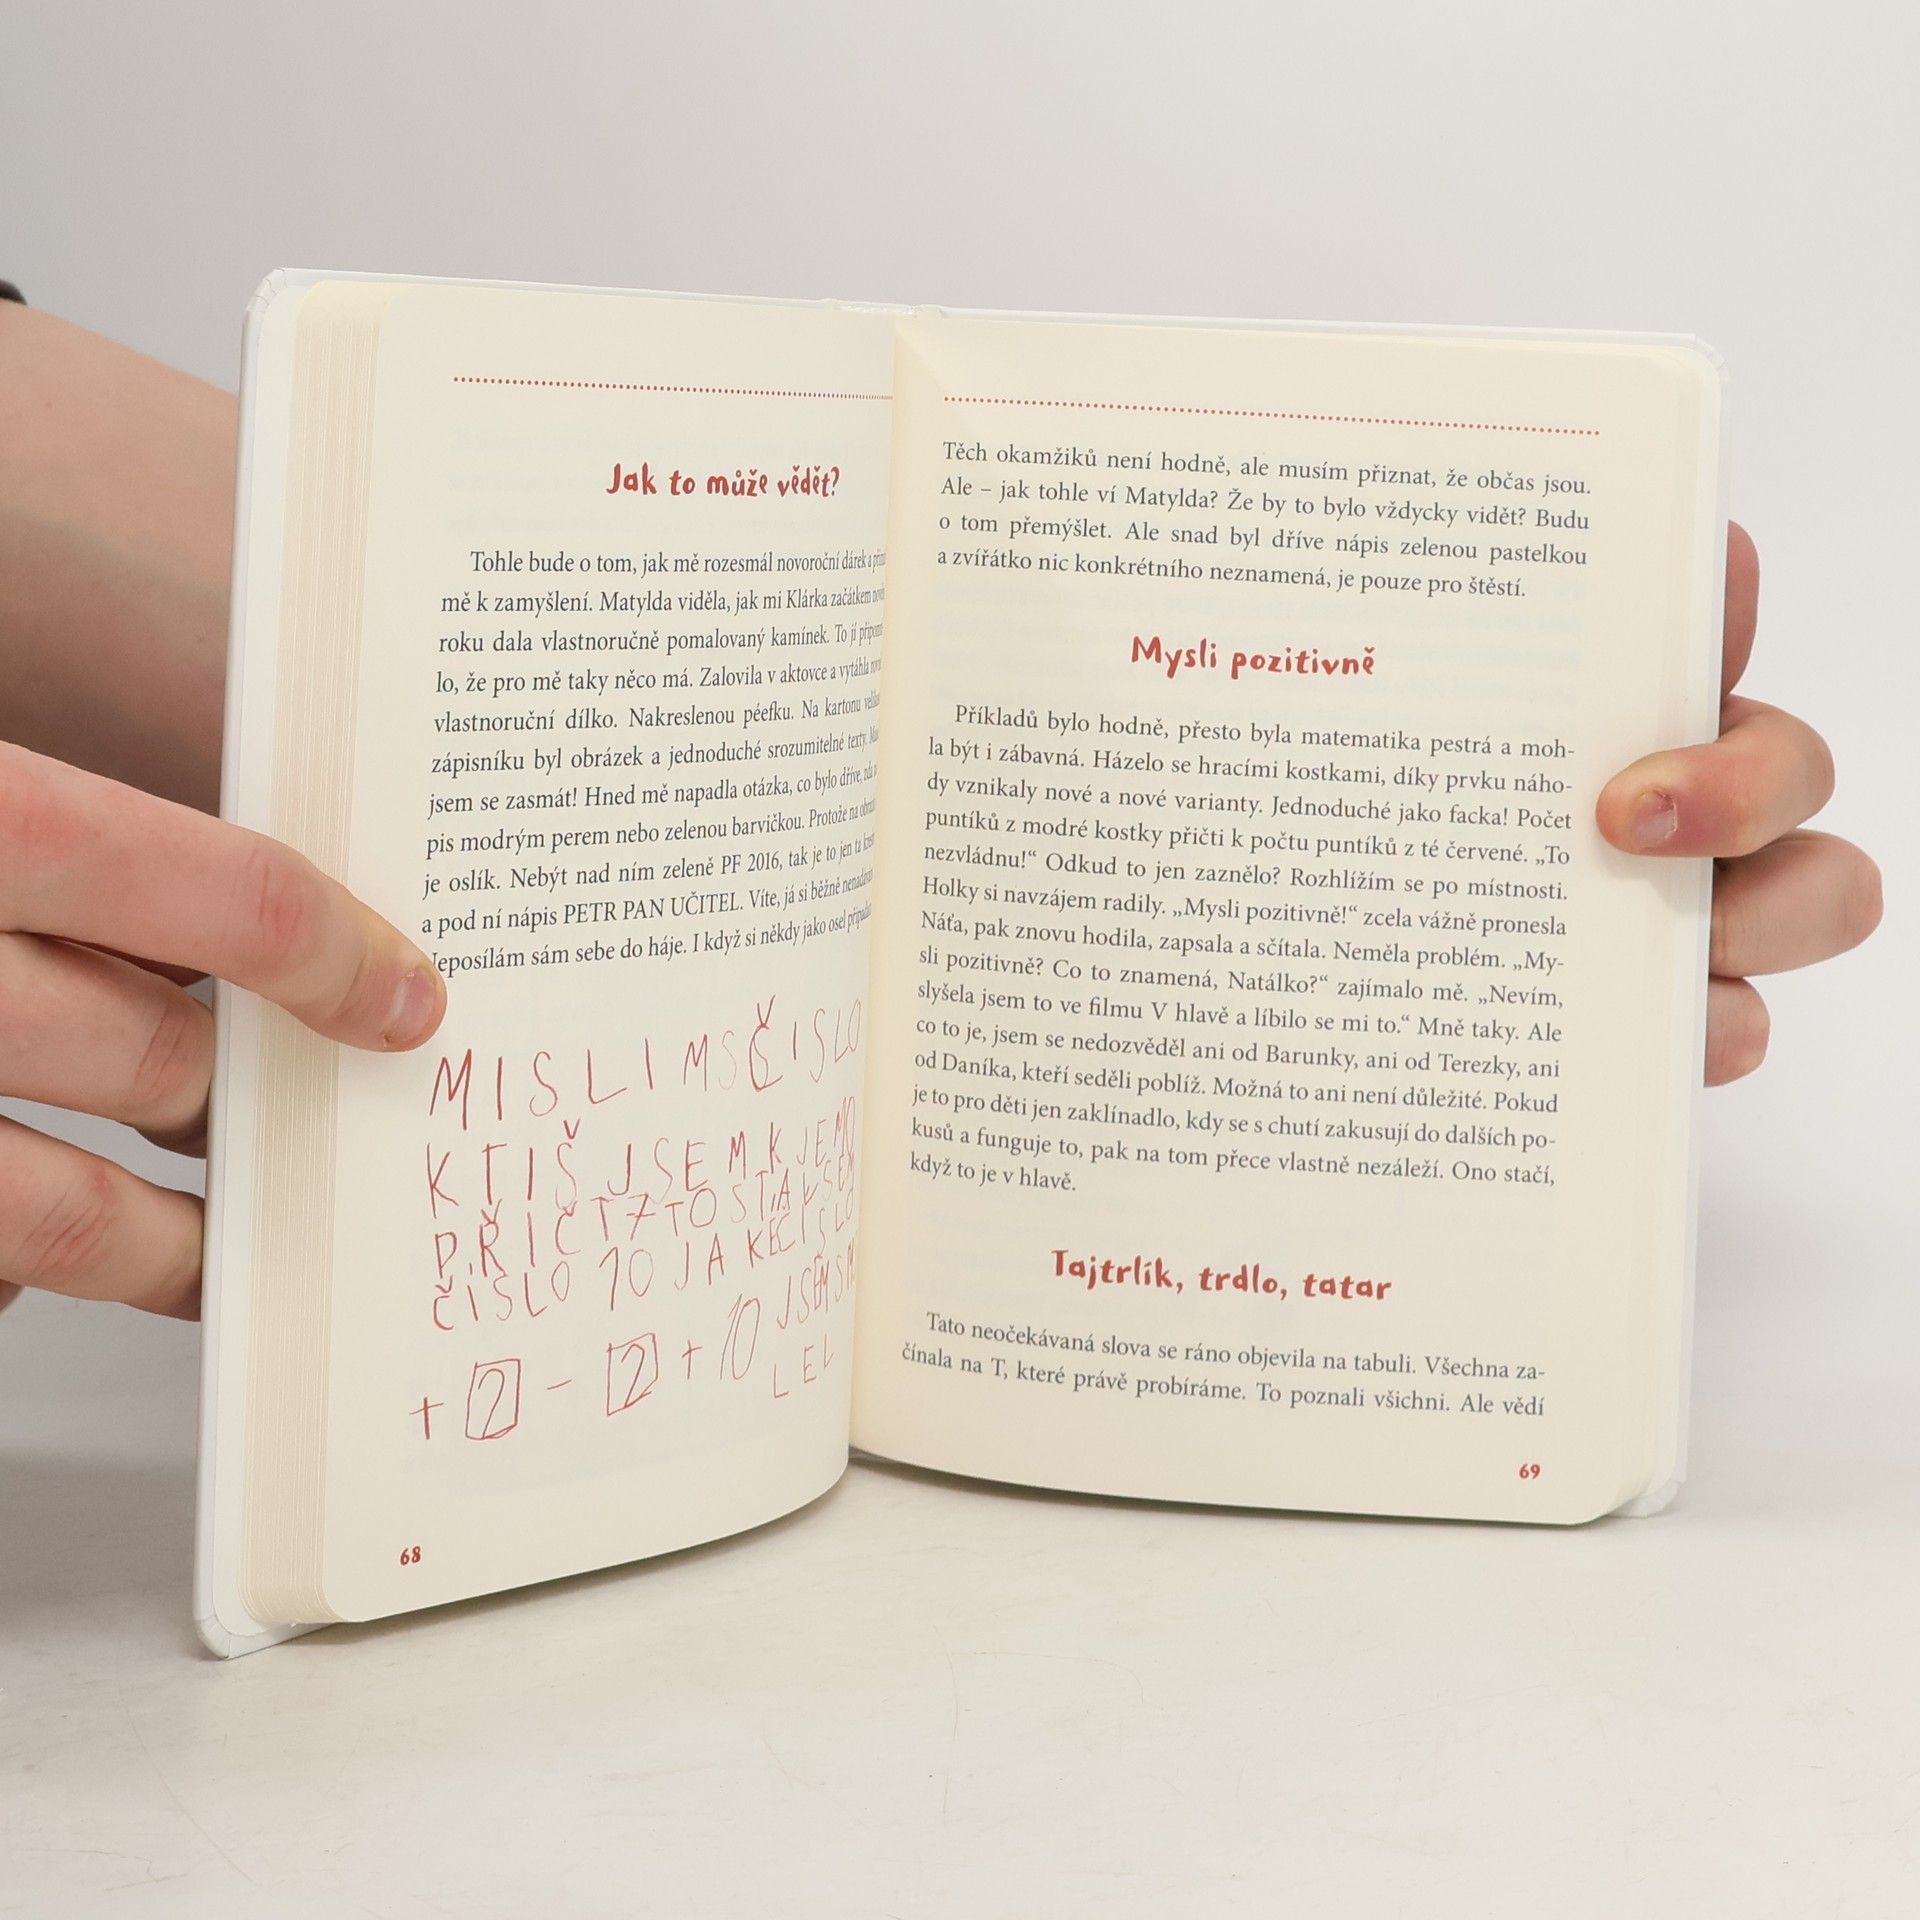 Jak to může vědět?
Tohle bude o tom, jak mě rozesmál novoroční dárek a
mě k zamyšlení. Matylda viděla, jak mi Klárka začátkem
roku dala vlastnoručně pomalovaný kamínek. To jí
lo, že pro mě taky něco má. Zalovila v aktovce a vytáhla
vlastnoruční dílko. Nakreslenou péefku. Na kartonu
zápisníku byl obrázek a jednoduché srozumitelné texty.
jsem se zasmát! Hned mě napadla otázka, co bylo dříve,
pis modrým perem nebo zelenou barvičkou. Protože na
je oslík. Nebýt nad ním zeleně PF 2016, tak je to jen ta
a pod ní nápis PETR PAN UČITEL. Víte, já si běžně
Neposílám sám sebe do háje. I když si někdy jako osel
MISLIM S ČISLO
KTIŠ JSEM K JEMO
PŘIČT 7 TO STAK SEM
ČISLO 10 JAKE ČISLO
+ 2 - 2 + 10 JSEM SM
LEL
68
Těch okamžiků není hodně, ale musím přiznat, že občas jsou.
Ale – jak tohle ví Matylda? Že by to bylo vždycky vidět? Budu
o tom přemýšlet. Ale snad byl dříve nápis zelenou pastelkou
a zvířátko nic konkrétního neznamená, je pouze pro štěstí.
Mysli pozitivně
Příkladů bylo hodně, přesto byla matematika pestrá a moh-
la být i zábavná. Házelo se hracími kostkami, díky prvku náho-
dy vznikaly nové a nové varianty. Jednoduché jako facka! Počet
puntíků z modré kostky přičti k počtu puntíků z té červené. „To
nezvládnu!“ Odkud to jen zaznělo? Rozhlížím se po místnosti.
Holky si navzájem radily. „Mysli pozitivně!“ zcela vážně pronesla
Náťa, pak znovu hodila, zapsala a sčítala. Neměla problém. „My-
sli pozitivně? Co to znamená, Natálko?“ zajímalo mě. „Nevím,
slyšela jsem to ve filmu V hlavě a líbilo se mi to.“ Mně taky. Ale
co to je, jsem se nedozvěděl ani od Barunky, ani od Terezky, ani
od Daníka, kteří seděli poblíž. Možná to ani není důležité. Pokud
je to pro děti jen zaklínadlo, kdy se s chutí zakusují do dalších po-
kusů a funguje to, pak na tom přece vlastně nezáleží. Ono stačí,
když to je v hlavě.
Tajtrlík, trdlo, tatar
Tato neočekávaná slova se ráno objevila na tabuli. Všechna za-
čínala na T, které právě probíráme. To poznali všichni. Ale vědí
69